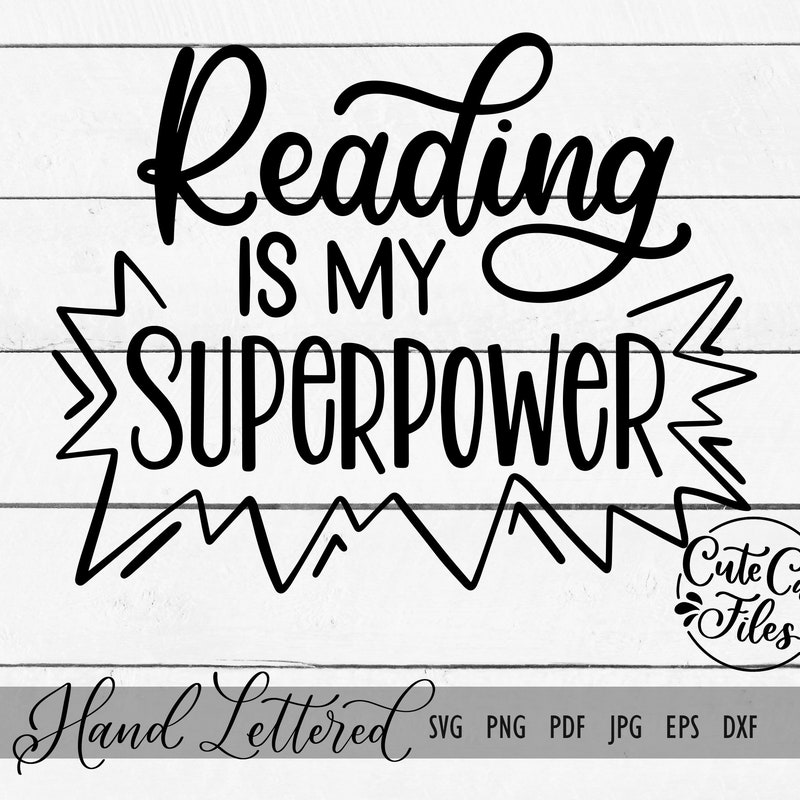 Reading
IS MY
SUPERPOWER
CUTE
Files
Hand Lettered SVG PNG PDF JPG EPS DXF